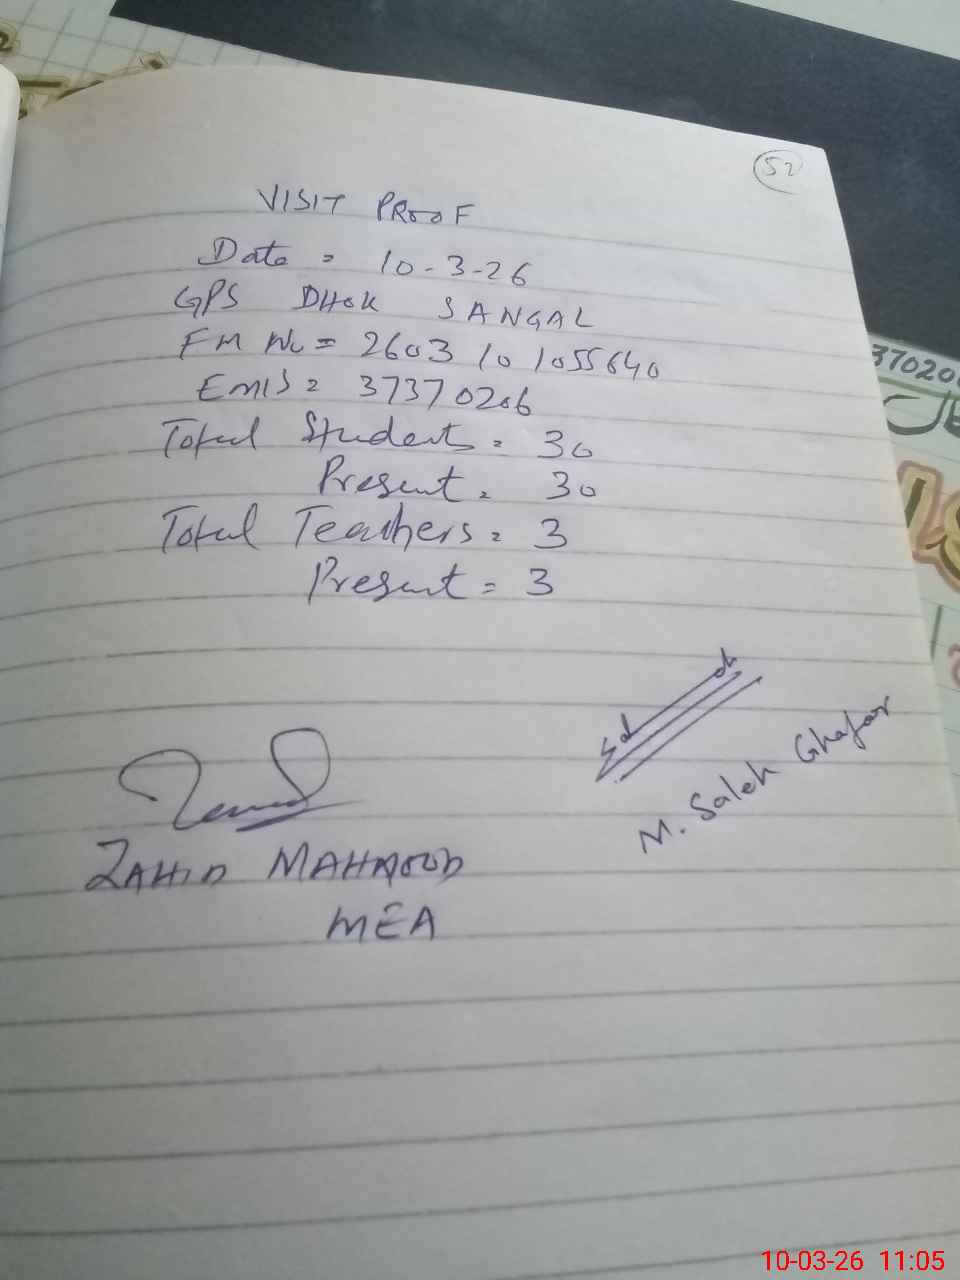 52
VISIT PROOF
Date = 10-3-26
GPS DHOK SANGAL
FM No = 2603 10 1055640
EMIS = 37370206
Total Students = 30
Present = 30
Total Teachers = 3
Present = 3
Sd
M. Saleh Ghafar
ZAHID MAHMOOD
MEA
10-03-26 11:05